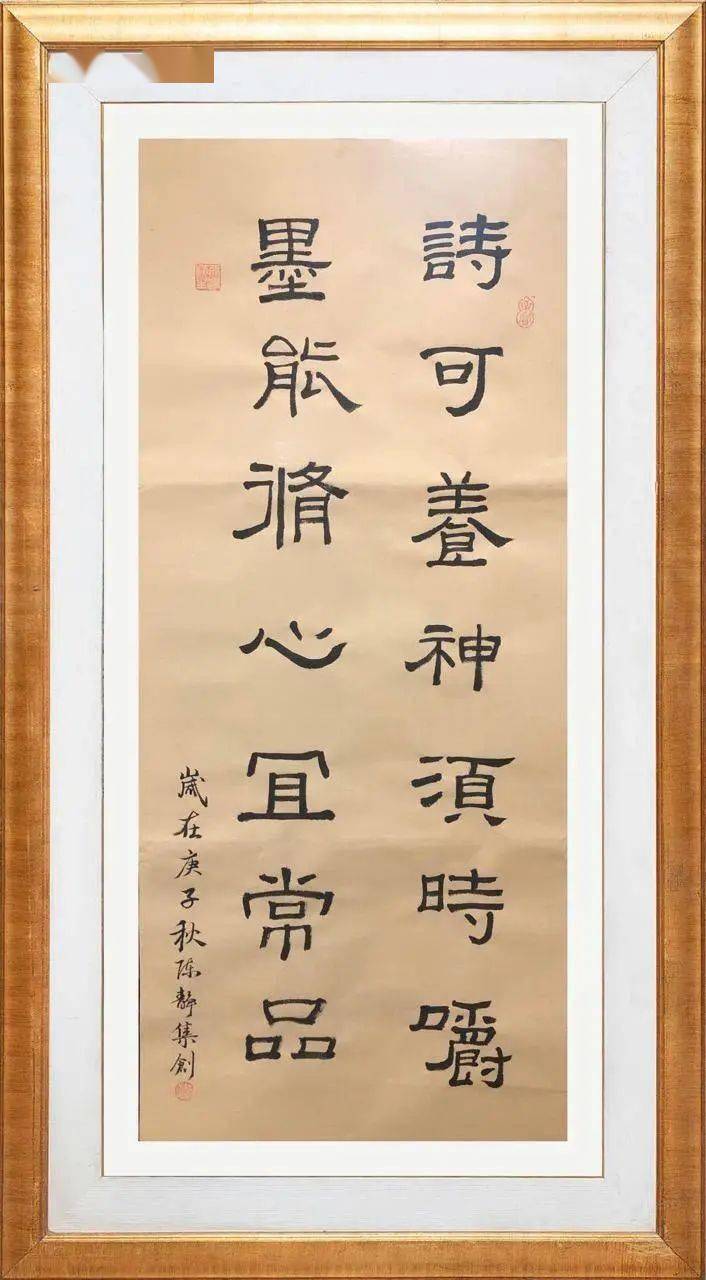 詩可養神須時嚼
墨能脩心宜常品
歲在庚子秋陈静集創